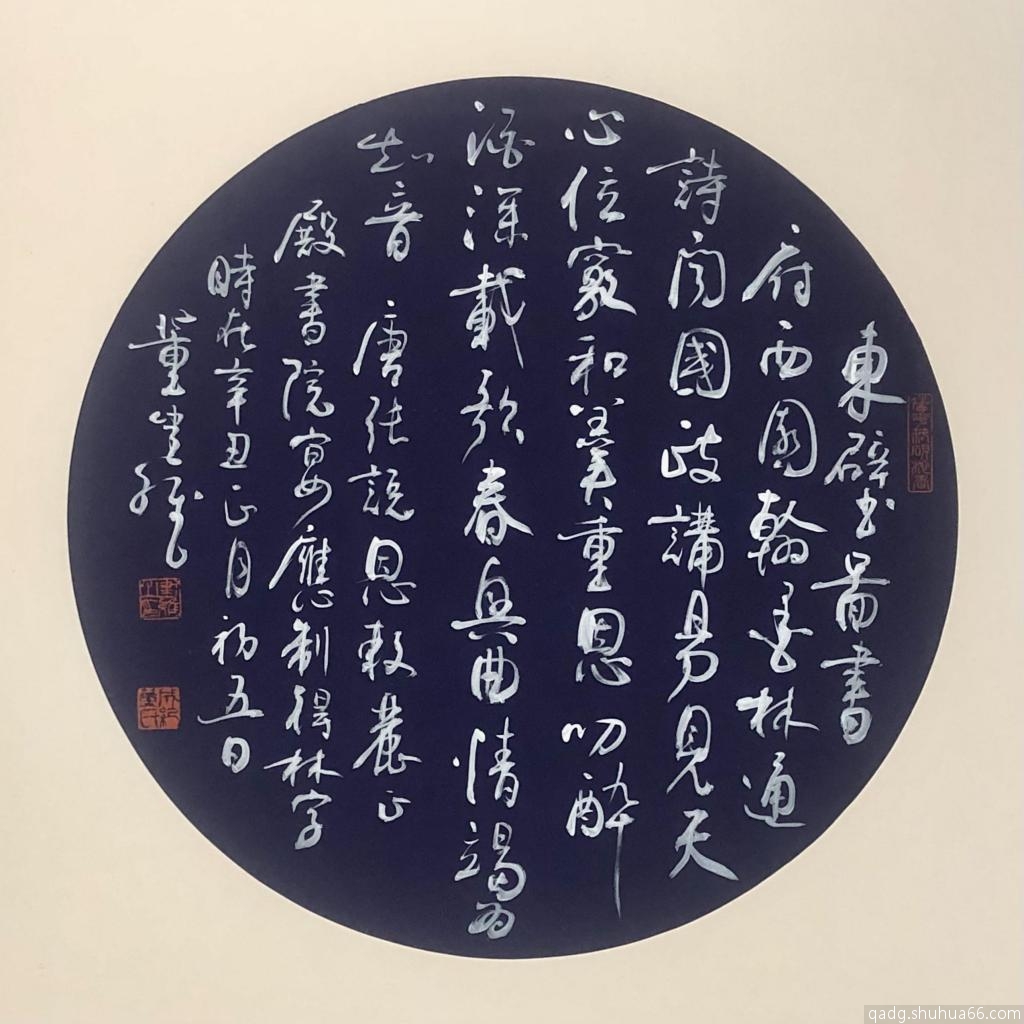 東壁啚書
府西園翰墨林通
詩聞國政講易見天
心位竊和羹重恩叨醉
酒深載歌春興曲情竭為
知音 唐張說恩敕麗正
殿書院宴應制得林字
時在辛丑正月初五日
董
qadg.shuhua66.com